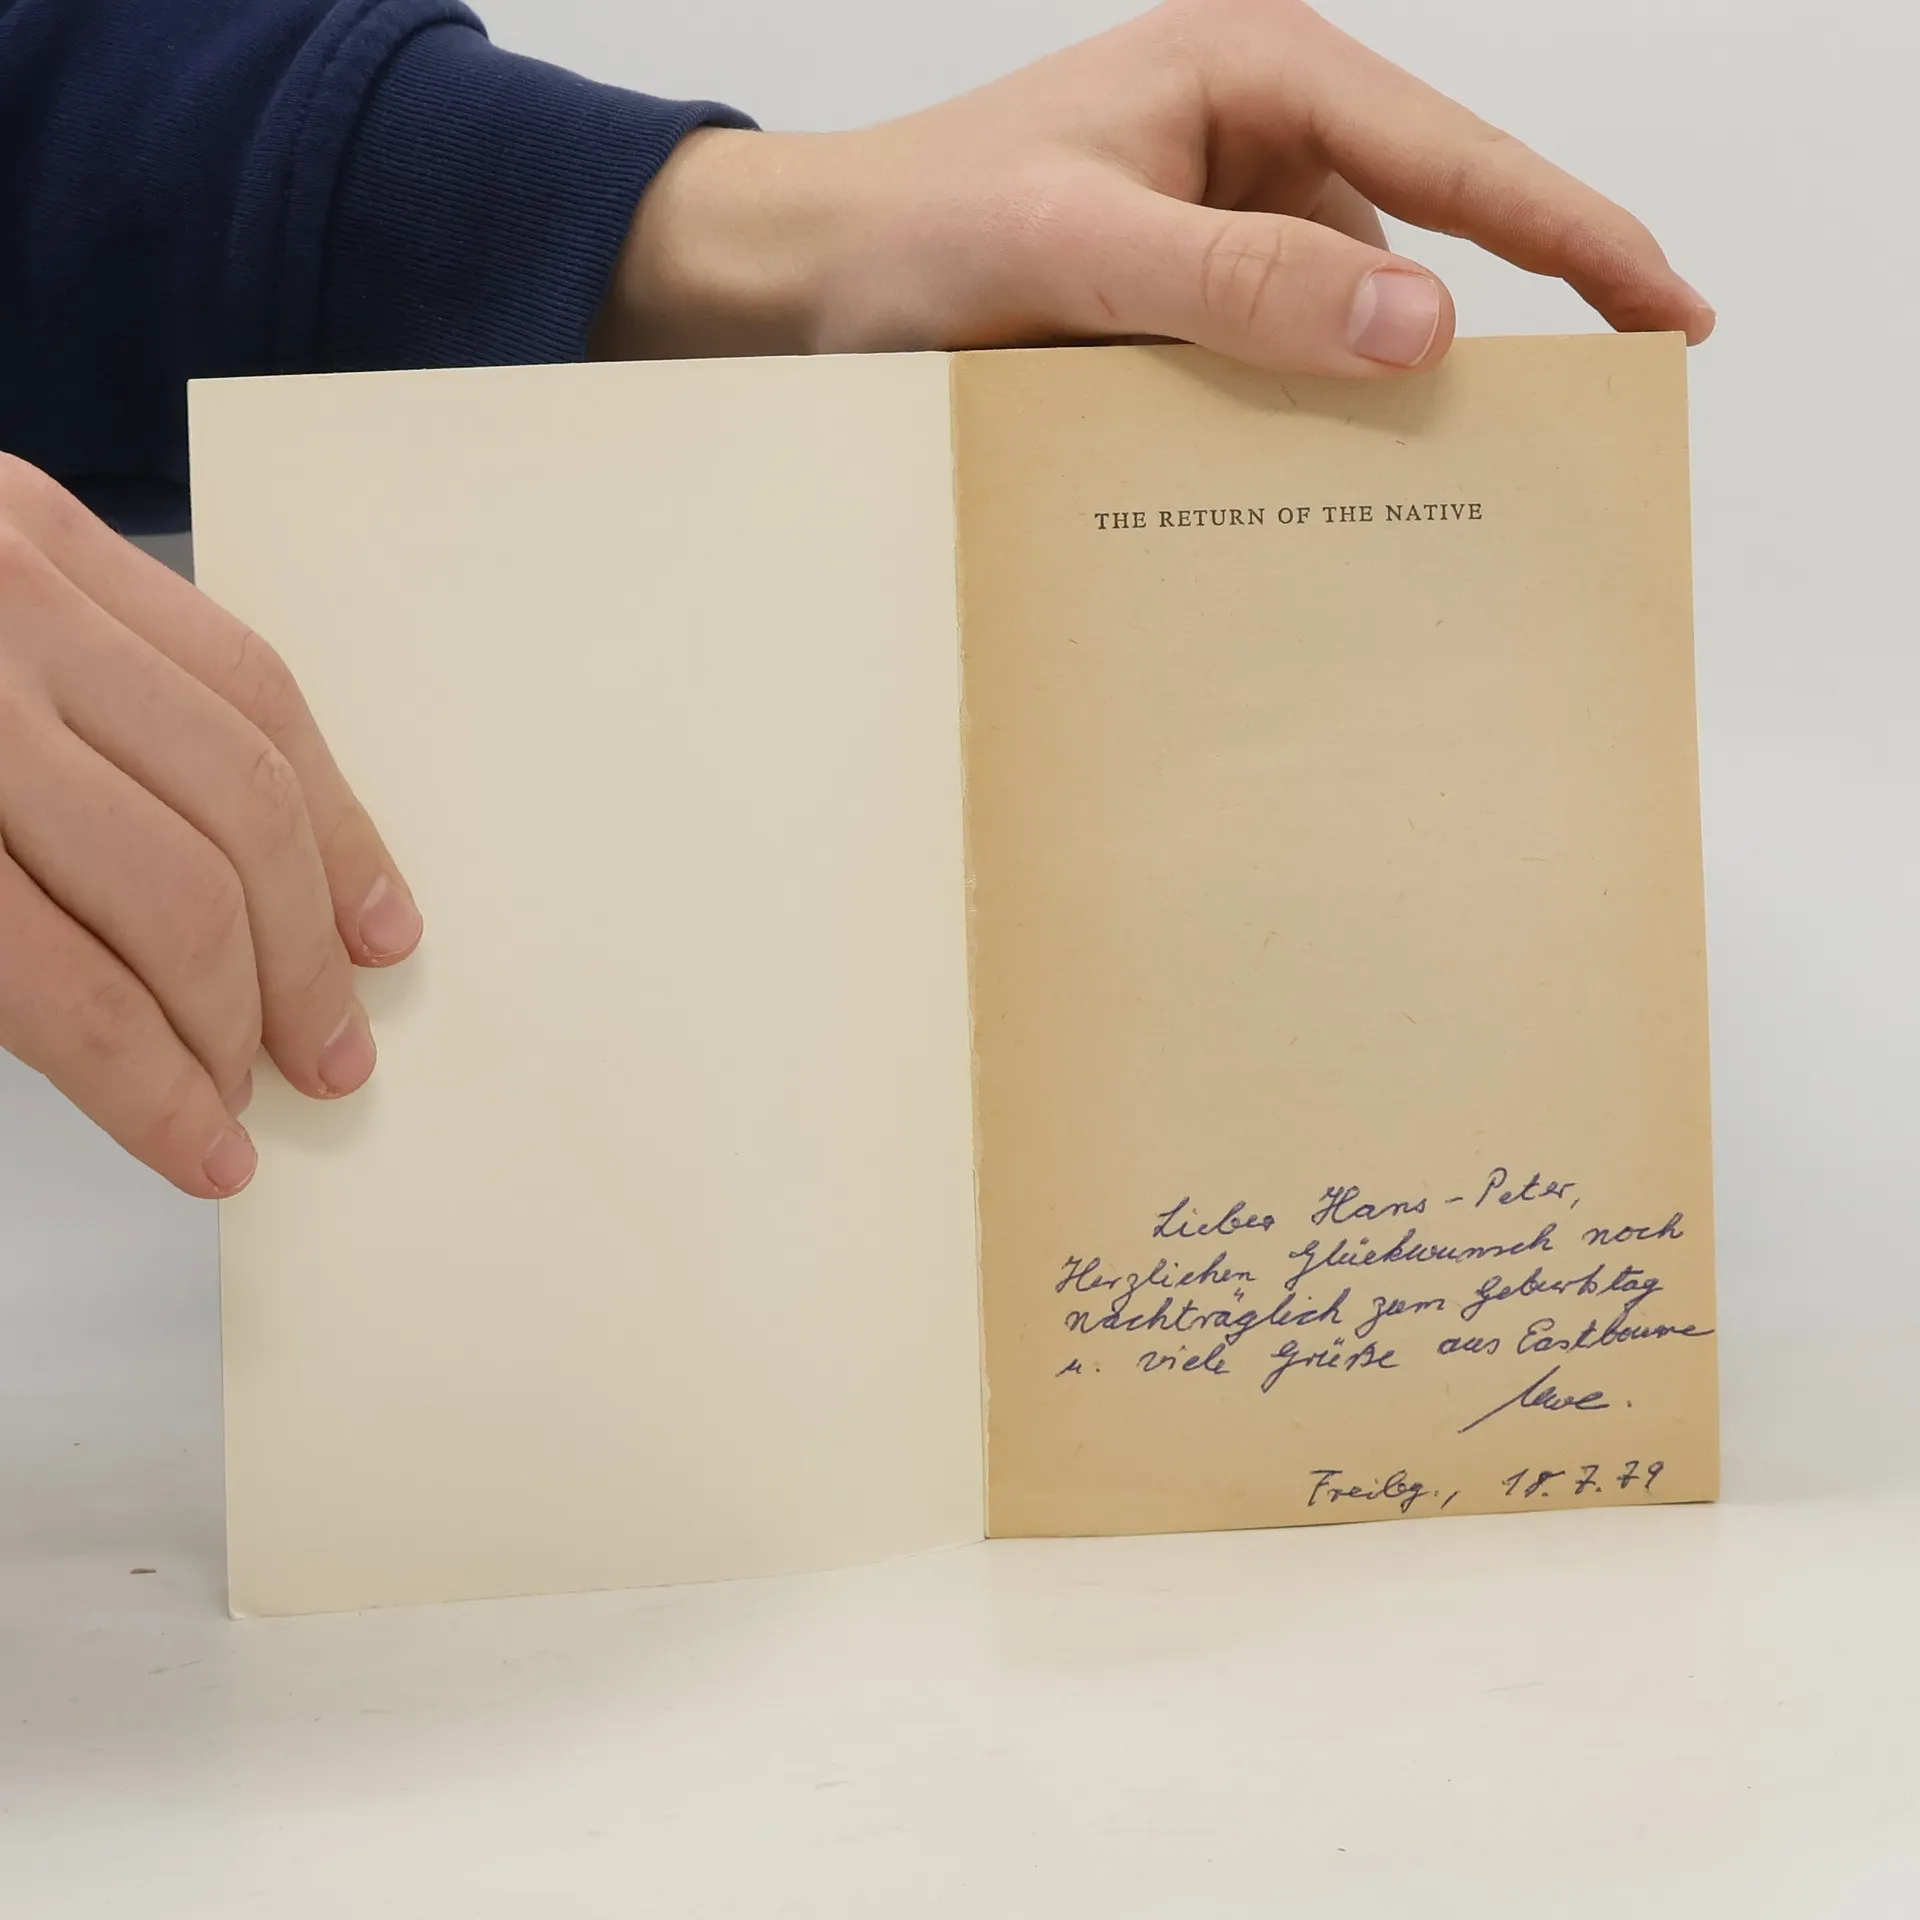 THE RETURN OF THE NATIVE
Lieber Hans-Peter,
Herzlichen Glückwunsch noch
nachträglich zum Geburtstag
u. viele Grüße aus Eastbourne
Uwe.
Freibg., 18.7.79